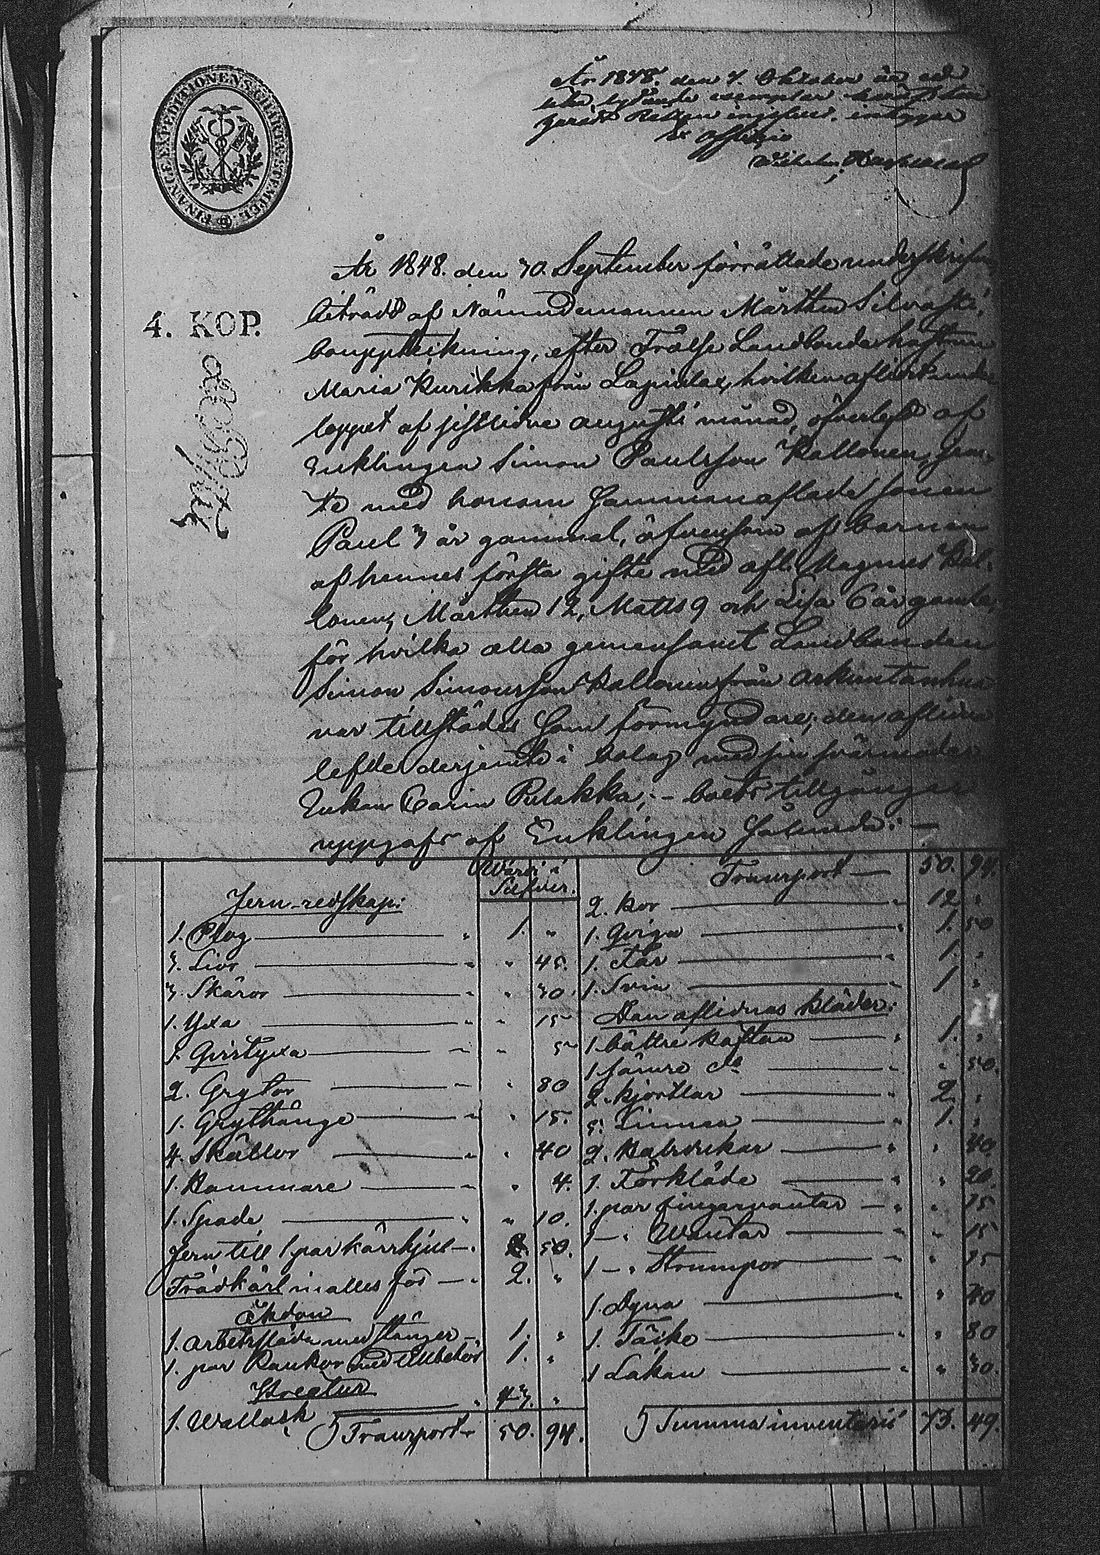 FINANCE EXPEDITIONENS CHARTÆ STEMPEL
År 1848. den 7 Oktober
lika lydande exemplar
Rätten ingifvit.
Ex officio
4. KOP.
År 1848. den 30. September förrättade undertecknad
biträdd af Nämndemannen Mårthen Silvasti,
bouppteckning, efter Frälse Landbondehustrun
Maria Kurikka från Lapinlax, hvilken aflidit under
loppet af sistlidne augusti månad, öfverlefd af
Enklingen Simon Paulsson Kallonen,
te med honom sammanaflade sonen
Paul 3 år gammal, äfvensom af barnen
af hennes första gifte med afl. Magnus Kal-
lonen, Mårthen 12, Matts 9 och Lisa 6 år gamla,
för hvilka alla gemensamt Landbonden
Simon Simonsson Kallonen från
var tillstädes som förmyndare; den aflidna
lefde derjemte i bolag med sin svärmoder
Enkan Carin Pulakka; – boets tillgångar
uppgafs af Enklingen sålunda: —
Värde i Silfver.
Jern-redskap:
1. Plog — " 1. "
3. Liar — " " 45.
3. Skäror — " " 30.
1. Yxa — " " 15
1. — " " 5
2. Grytor — " " 80
1. Grythänge — " " 15.
4. Skällor — " " 40
1. Hammare — " " 4.
1. Spade — " " 10.
Jern till 1 par kärrhjul — " 50.
Trädkärl inalles för — " 2. "
Åkdon
1. arbetssläde med stänger — " 1. "
1. par Rankor med tillbehör 1. "
Kreatur
1. Wallack — " 43. "
Transport 50. 94.
Transport — 50. 94.
2. Kor — " 12. "
1. Qviga — " 1. 50
1. Får — " 1. "
1. Svin — " 1. "
Den aflidnas kläder:
1. bättre kaftan — " 1. "
1. sämre do — " " 50.
2. kjortlar — " 2. "
5. Linnen — " 1. "
2. Halsdukar — " " 40.
1. Förkläde — " " 20.
1. par fingervantar — " " 15
1 — " Vantar — " " 15
1 — " Strumpor — " " 15
1. Dyna — " " 40
1. Täcke — " " 80
1 Lakan — " " 30.
Summa inventarii 73. 49.